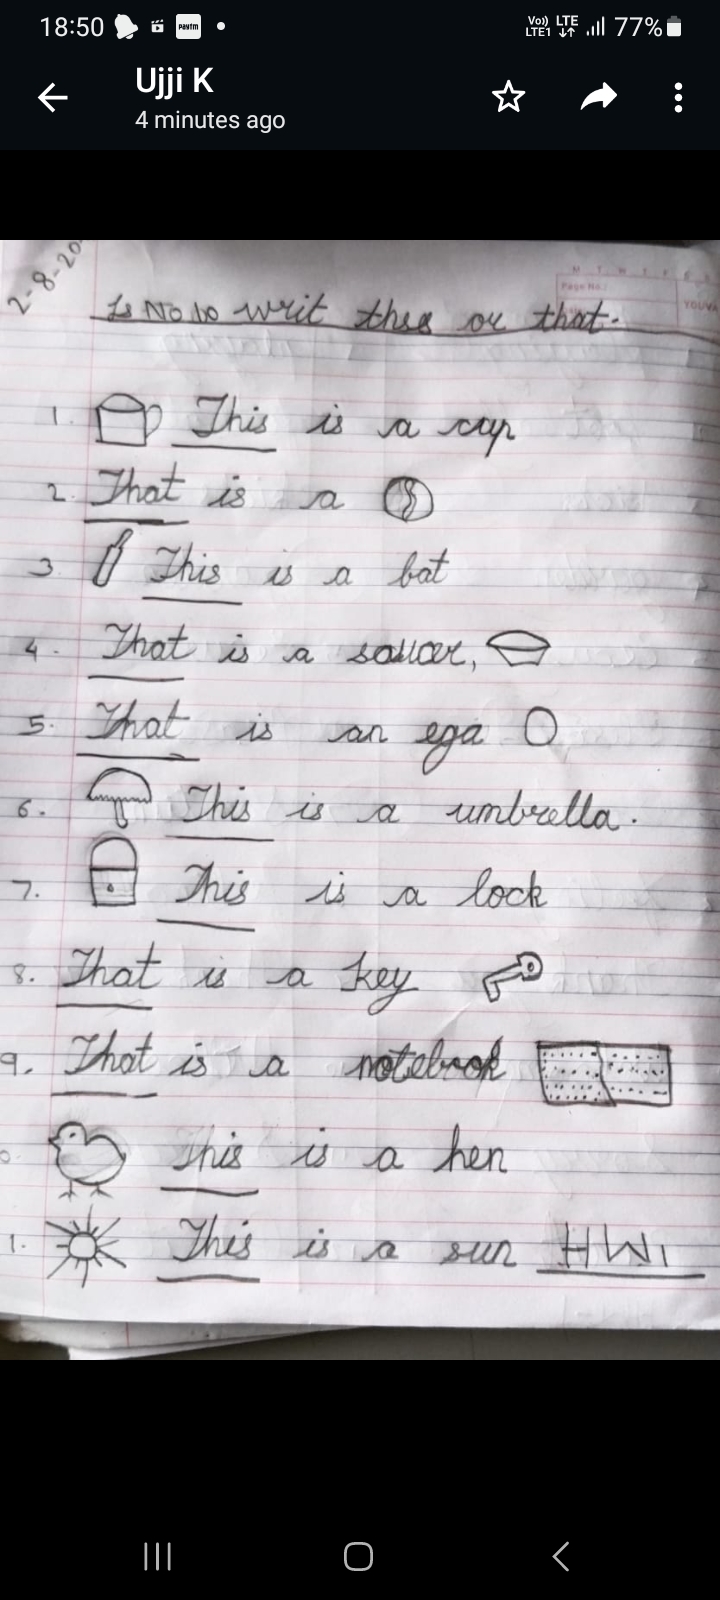 18:50 Vo)) LTE LTE1 77%
paytm
Ujji K
4 minutes ago
2-8-20
M T W T F S
Page No.:
YOUVA
Ls No 10 writ thes or that.
1. This is a cup
2. That is a
3 This is a bat
4. That is a saucer,
5. That is an ega
6. This is a umbrella.
7. This is a lock
8. That is a key
9. That is a notebook
0. This is a hen
1. This is a sun HW